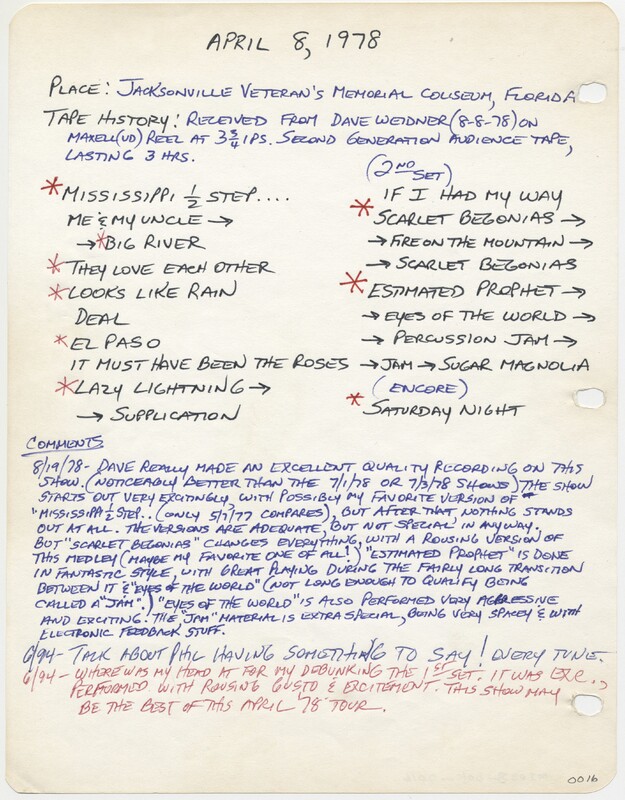 APRIL 8, 1978
PLACE: JACKSONVILLE VETERAN'S MEMORIAL COLISEUM, FLORIDA
TAPE HISTORY: RECEIVED FROM DAVE WEIDNER (8-8-78) ON
MAXELL (UD) REEL AT 3 3/4 IPS. SECOND GENERATION AUDIENCE TAPE,
LASTING 3 HRS.
* MISSISSIPPI 1/2 STEP....
ME & MY UNCLE →
→ * BIG RIVER
* THEY LOVE EACH OTHER
* LOOKS LIKE RAIN
DEAL
* EL PASO
IT MUST HAVE BEEN THE ROSES
* LAZY LIGHTNING →
→ SUPPLICATION
(2ND SET)
IF I HAD MY WAY
* SCARLET BEGONIAS →
→ FIRE ON THE MOUNTAIN →
→ SCARLET BEGONIAS
* ESTIMATED PROPHET →
→ EYES OF THE WORLD →
→ PERCUSSION JAM →
→ JAM → SUGAR MAGNOLIA
(ENCORE)
* SATURDAY NIGHT
COMMENTS
8/19/78- DAVE REALLY MADE AN EXCELLENT QUALITY RECORDING ON THIS
SHOW. (NOTICEABLY BETTER THAN THE 7/1/78 OR 7/3/78 SHOWS) THE SHOW
STARTS OUT VERY EXCITINGLY, WITH POSSIBLY MY FAVORITE VERSION OF
"MISSISSIPPI 1/2 STEP.. (ONLY 5/7/77 COMPARES), BUT AFTER THAT NOTHING STANDS
OUT AT ALL. THE VERSIONS ARE ADEQUATE, BUT NOT SPECIAL IN ANYWAY.
BUT "SCARLET BEGONIAS" CHANGES EVERYTHING, WITH A ROUSING VERSION OF
THIS MEDLEY (MAYBE MY FAVORITE ONE OF ALL!) "ESTIMATED PROPHET" IS DONE
IN FANTASTIC STYLE, WITH GREAT PLAYING DURING THE FAIRLY LONG TRANSITION
BETWEEN IT & "EYES OF THE WORLD" (NOT LONG ENOUGH TO QUALIFY BEING
CALLED A "JAM".) "EYES OF THE WORLD" IS ALSO PERFORMED VERY AGGRESSIVE
AND EXCITING. THE "JAM" MATERIAL IS EXTRA SPECIAL, BEING VERY SPACEY & WITH
ELECTRONIC FEEDBACK STUFF.
6/94- TALK ABOUT PHIL HAVING SOMETHING TO SAY! EVERY TUNE.
6/94- WHERE WAS MY HEAD AT FOR MY DEBUNKING THE 1ST SET. IT WAS EXC.,
PERFORMED WITH ROUSING GUSTO & EXCITEMENT. THIS SHOW MAY
BE THE BEST OF THIS APRIL '78 TOUR.
0016